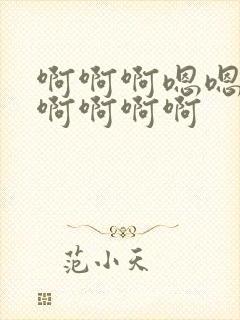 啊啊啊嗯嗯
啊啊啊啊
范小天